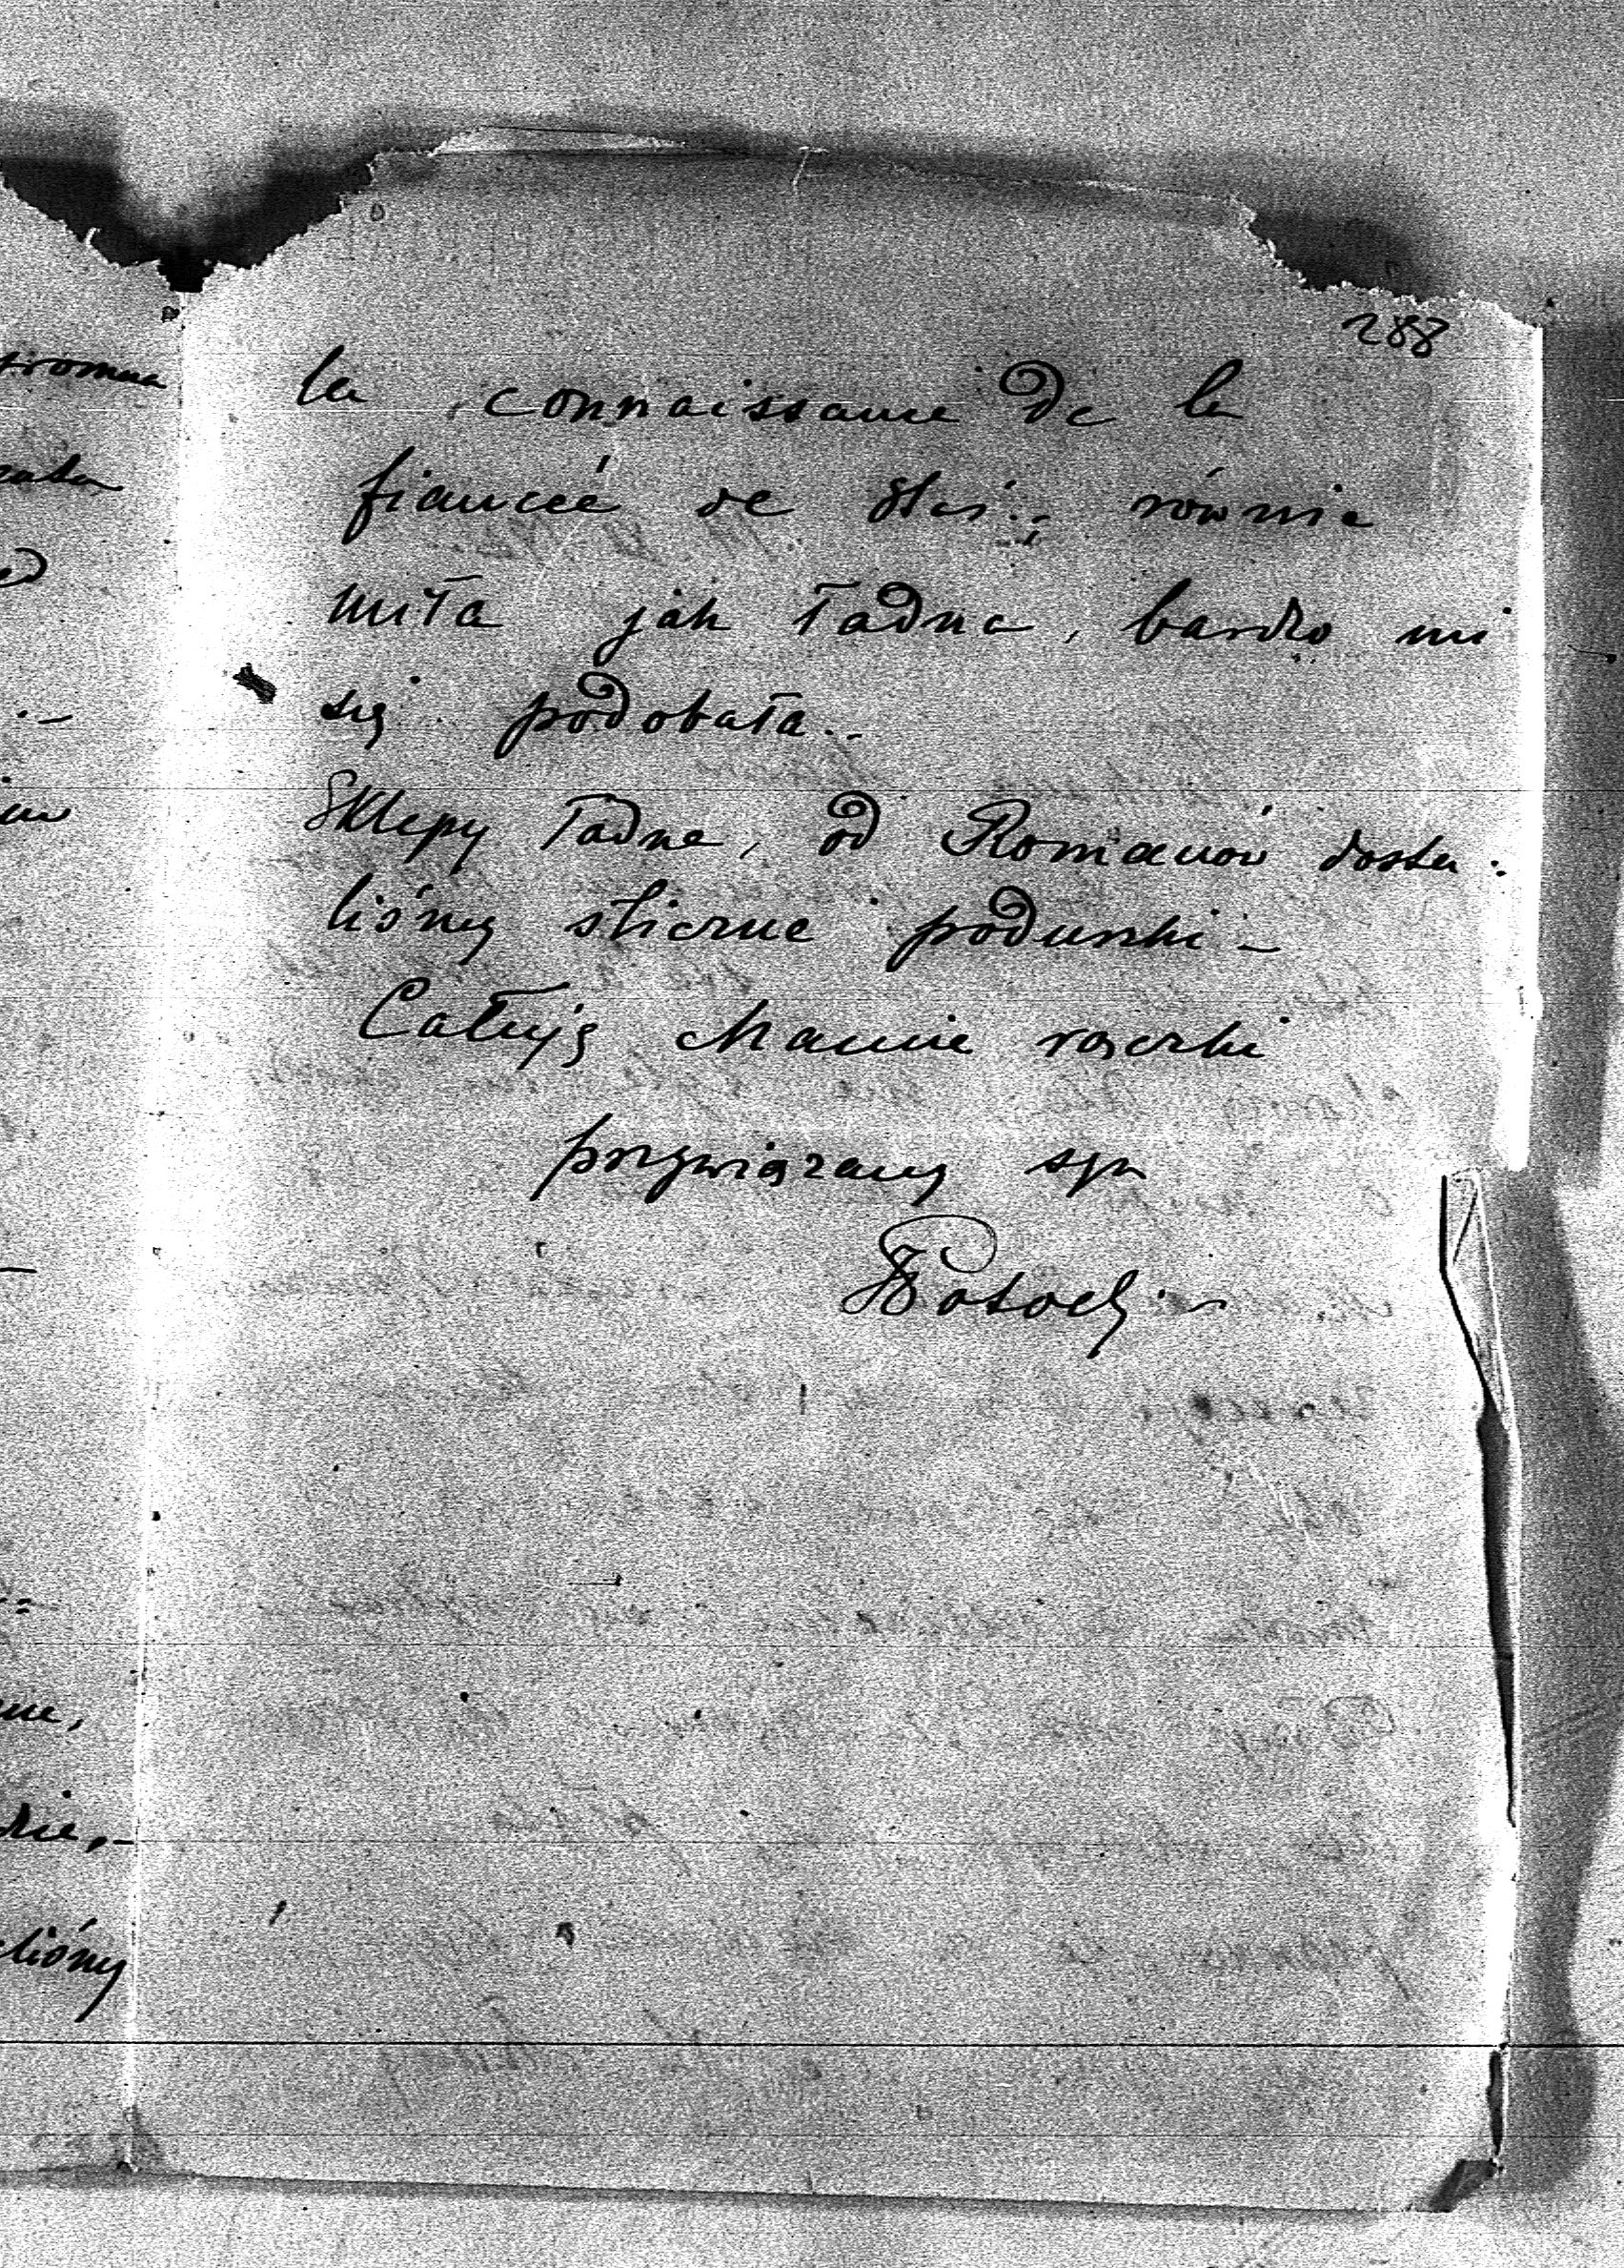 288
la connaissance de la
fianceé de Staś.; równie
miła jak ładna, bardzo mi
się podobała..
Sklepy ładne, od Romanów dosta.
liśmy śliczne poduszki –
Całuję Mamie rączki
przywiązany syn
Potocki